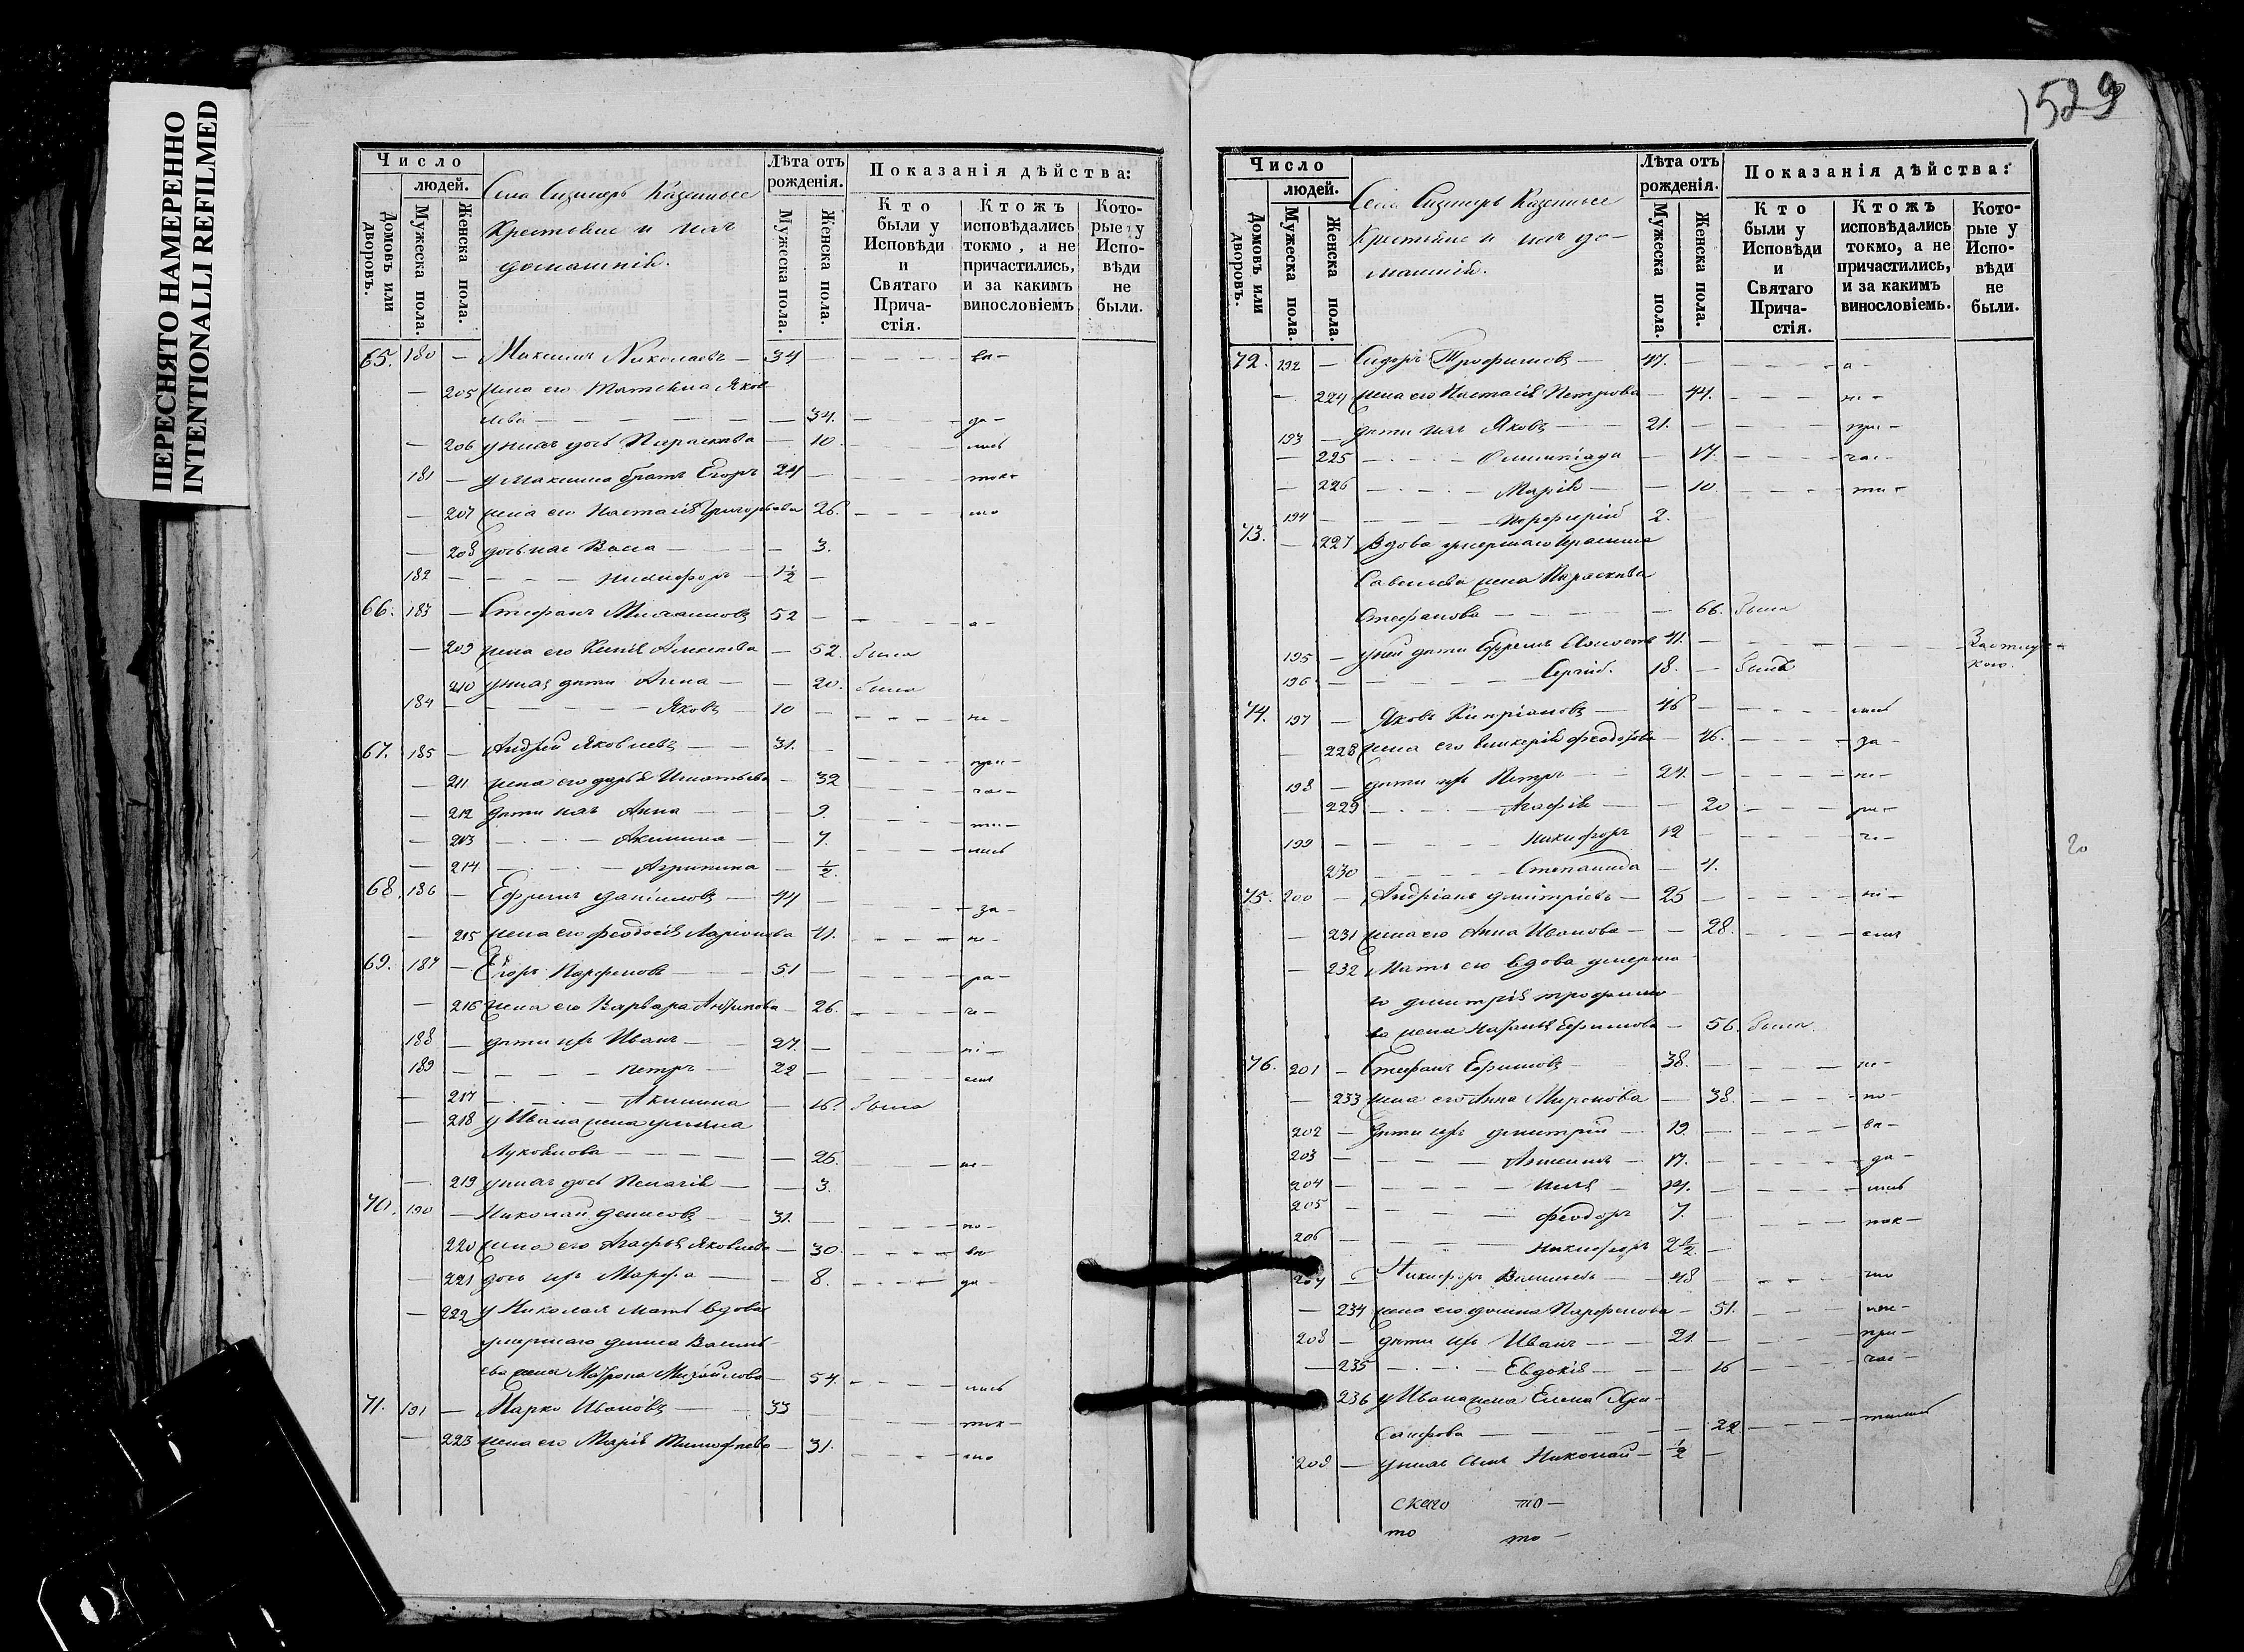 ПЕРЕСНЯТО НАМЕРЕННО
INTENTIONALLI REFILMED
Число
людей.
Домовъ или дворовъ.
Мужеска пола.
Женска пола.
Села Сизнеръ Казенные
Крестьяне и ихъ
домашнія.
Лѣта отъ рожденія.
Мужеска пола.
Женска пола.
Показанія дѣйства:
Кто были у Исповѣди и Святаго Причастія.
Ктожъ исповѣдались токмо, а не причастились, и за какимъ винословіемъ
Которые у Исповѣди не были.
65. 180 — Максимъ Николаевъ — 34 — ва-
— 205 жена его Татьяна Яков
лева — 34. — да-
— 206 у нихъ дочь Параскева — 10. — лись
181 — у Максима братъ Егоръ 24 — ток-
— 207 жена его Настасія Григорьева 26. — мо
— 208 дочь ихъ Васса — 3.
182 — Никифоръ — 1½ —
66. 183 — Стефанъ 52 — а-
— 209 жена его — 52. была
210 у нихъ дѣти Анна — 20. была
184 — Яковъ 10 — не-
67. 185 — Андрей Яковлевъ — 31. — при-
— 211 жена его Дарья Игнатьева — 32 — ча-
— 212 дѣти ихъ Анна — 9. — сти-
— 213 — Акилина — 7. — лись
— 214 — Агрипина — ½.
68. 186 — Ефремъ Даниловъ — 44 — за-
— 215 жена его Феодосія Ларіонова 41. — не-
69. 187 — Егоръ Парфеновъ — 51 — ра-
— 216 жена его Варвара — 26. — че-
188 — дѣти ихъ Иванъ — 27. — ні-
189 — Петръ — 22 — емъ
— 217 — Акилина — 16. была
— 218 у Ивана жена
26. — не-
— 219 у нихъ дочь Пелагія — 3.
70. 190 — Николай Денисовъ — 31. — по-
220 жена его Агафья Яковлева — 30. — ва-
— 221 дочь ихъ Марфа — 8. — да-
— 222 у Николая мать вдова
умершаго Дениса Василь-
ева жена Матрона Михайлова — 54. — лись
71. 191 — Марко Ивановъ — 33 — ток-
— 223 жена его Марія Тимофеева — 31. — мо
1529
Число
людей.
Домовъ или дворовъ.
Мужеска пола.
Женска пола.
Села Сизнеръ Казенные
Крестьяне и ихъ до-
машнія.
Лѣта отъ рожденія.
Мужеска пола.
Женска пола.
Показанія дѣйства:
Кто были у Исповѣди и Святаго Причастія.
Ктожъ исповѣдались токмо, а не причастились, и за какимъ винословіемъ.
Которые у Исповѣди не были.
72. 192 — Сидоръ Трофимовъ — 47. — а-
— 224 жена его Настасія Петрова — 44. — не-
193 — дѣти ихъ Яковъ — 21. — при-
— 225 — Олимпіада — 17. — час-
— 226 — Марія — 10. — ти-
194 — Порфирій 2.
73. — 227 Вдова умершаго
Савельева жена Параскева
Стефанова — 66. была
195 — у ней дѣти Ефремъ 41. —
196 — Сергій. 18. — былъ
74. 197 — Яковъ Кипріановъ — 46 — лись
— 228 жена его Гликерія Феодорова — 46. — за-
198 — дѣти ихъ Петръ — 24. — не-
— 229 — Агафія — 20 — ра-
199 — Никифоръ 12 — че-
230 — Степанида — 4.
75. 200 — Андріанъ Дмитріевъ — 25 — ні-
— 231 жена его Анна Иванова — 28. — емъ
— 232 Мать его вдова умерша-
го Дмитрія Трофимо-
ва жена Ефимова — 56. была.
76. 201 — Стефанъ Ефимовъ — 38. — не-
— 233 жена его Анна Миронова — 38. — по-
202 — дѣти ихъ Дмитрій — 19. — ва-
203 — 17. — да-
204 — Илія — 14. — лись
205 — Феодоръ 7. — ток-
206 — Никифоръ 2½. —
207 — Никифоръ Васильевъ — 48 — мо
— 234 жена его Домна Парфенова — 51. — не-
208 — дѣти ихъ Иванъ — 21. — при-
— 235 — Евдокія — 16 — час-
236 у Ивана жена Елена Хри-
санфова — 22. — тились
209 — у нихъ сынъ Николай — ½ —
20